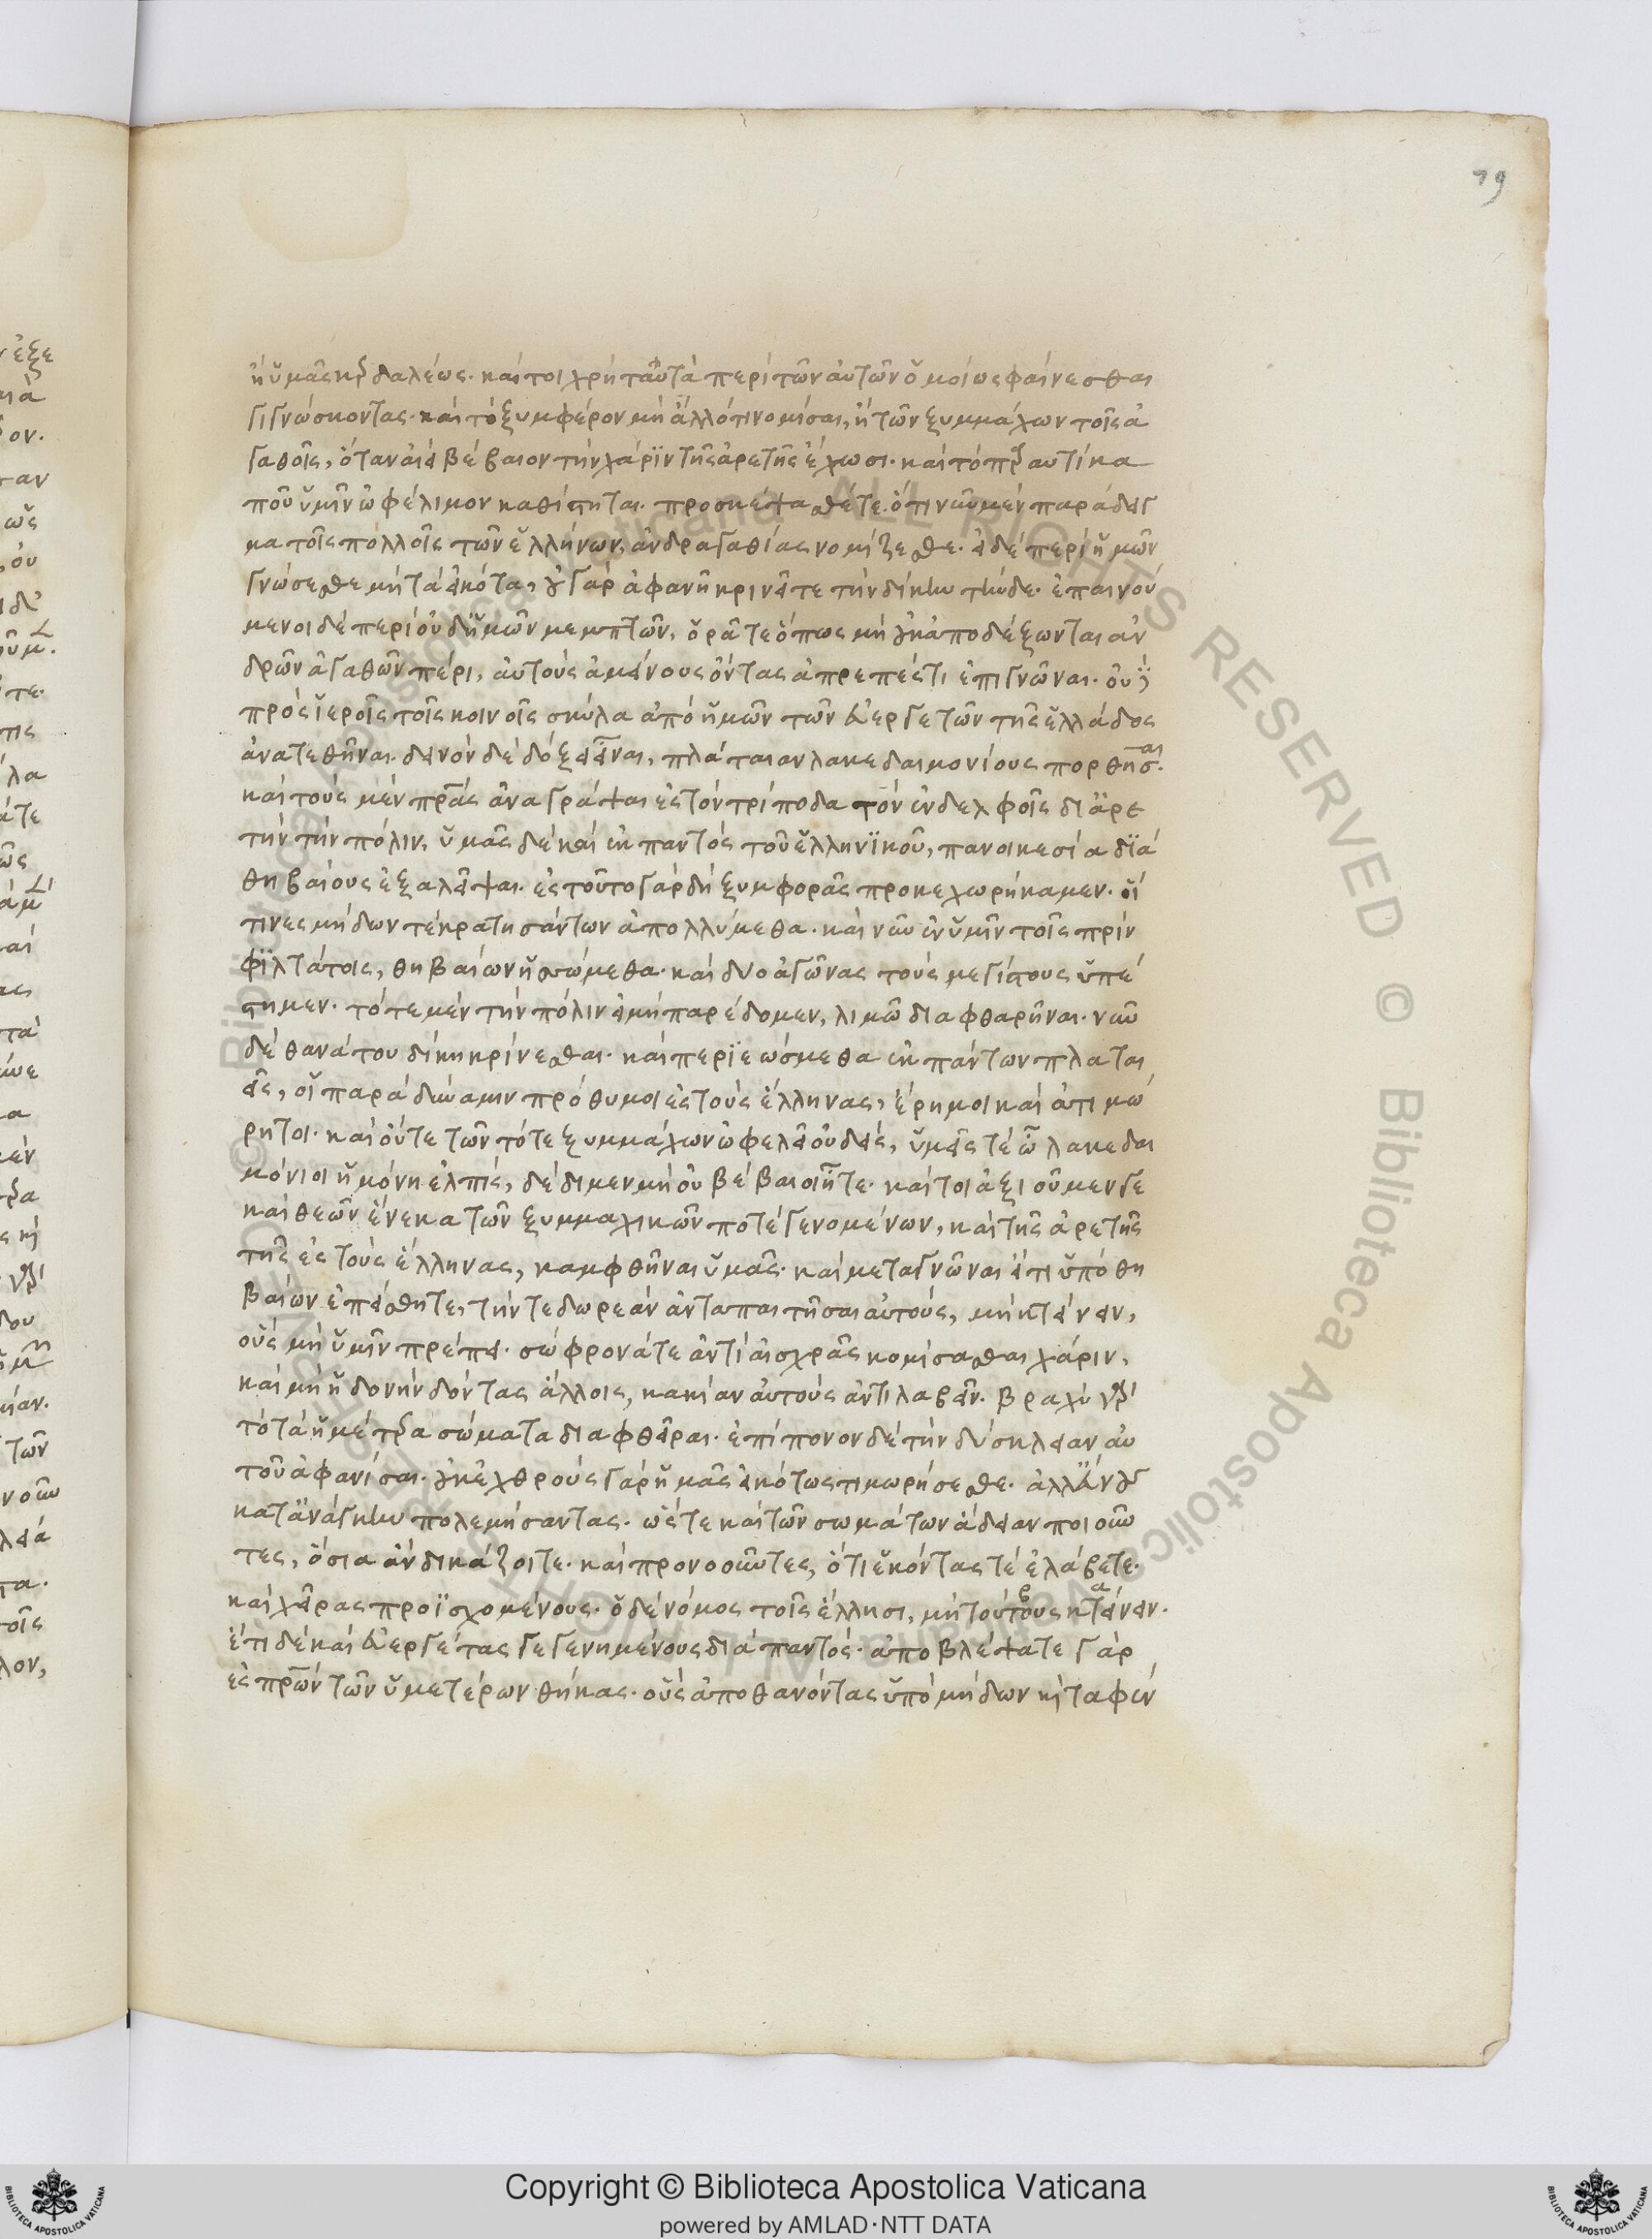 79
ἢ ὑμᾶς κερδαλέως· καίτοι χρὴ ταῦτὰ περὶ τῶν αὐτῶν ὁμοίως φαίνεσθαι
γιγνώσκοντας· καὶ τὸ ξυμφέρον μὴ ἄλλό τι νομίσαι, ἢ τῶν ξυμμάχων τοῖς ἀ
γαθοῖς, ὅταν ἀιεὶ βέβαιον τὴν χάρϊν τῆς ἀρετῆς ἔχωσι· καὶ τὸ παραυτίκα
ποῦ ὑμῖν ὠφέλιμον καθίστηται. προσκέψασθέ τε ὅτι νῦν μὲν παράδειγ
μα τοῖς πολλοῖς τῶν ἑλλήνων, ἀνδραγαθίας νομίζεσθε· εἰ δὲ περὶ ἡμῶν
γνώσεσθε μὴ τὰ εἰκότα, οὐ γὰρ ἀφανῆ κρινεῖτε τὴν δίκην τήνδε· ἐπαινού
μενοι δὲ περὶ οὐδ' ἡμῶν μεμπτῶν, ὁρᾶτε ὅπως μὴ οὐκ ἀποδέξωνται ἀν
δρῶν ἀγαθῶν πέρι, αὐτοὺς ἀμείνους ὄντας ἀπρεπές τι ἐπιγνῶναι· οὐδὲ
πρὸς ἱεροῖς τοῖς κοινοῖς σκύλα ἀπὸ ἡμῶν τῶν εὐεργετῶν τῆς ἑλλάδος
ἀνατεθῆναι. δεινὸν δὲ δόξει εἶναι, πλάταιαν λακεδαιμονίους πορθῆσαι·
καὶ τοὺς μὲν πατέρας ἀναγράψαι ἐς τὸν τρίποδα τὸν ἐν δελφοῖς δι' ἀρε
τὴν τὴν πόλιν, ὑμᾶς δὲ καὶ ἐκ παντὸς τοῦ ἑλληνϊκοῦ, πανοικεσία δϊὰ
θηβαίους ἐξαλεῖψαι. ἐς τοῦτο γὰρ δὴ ξυμφορᾶς προκεχωρήκαμεν· οἵ
τινες μήδων τὲ κρατησάντων ἀπολλύμεθα· καὶ νῦν ἐν ὑμῖν τοῖς πρὶν
φϊλτάτοις, θηβαίων ἡσσώμεθα· καὶ δυο ἀγῶνας τοὺς μεγίστους ὑπέ
στημεν· τότε μὲν τὴν πόλιν εἰ μὴ παρέδομεν, λιμῶ διαφθαρῆναι· νῦν
δὲ θανάτου δίκη κρίνεσθαι· καὶ περϊεώσμεθα ἐκ πάντων πλαται
εῖς, οἱ παρὰ δύναμιν πρόθυμοι ἐς τοὺς ἕλληνας, ἔρημοι καὶ ἀτιμώ
ρητοι· καὶ οὔτε τῶν τότε ξυμμάχων ὠφελεῖ οὐδεὶς, ὑμεῖς τὲ ὦ λακεδαι
μόνιοι ἡ μόνη ἐλπὶς, δέδιμεν μὴ οὐ βέβαιοι ἦτε· καίτοι ἀξιοῦμεν γε
καὶ θεῶν ἕνεκα τῶν ξυμμαχικῶν ποτὲ γενομένων, καὶ τῆς ἀρετῆς
τῆς ἐς τοὺς ἕλληνας, καμφθῆναι ὑμᾶς· καὶ μεταγνῶναι εἴ τι ὑπὸ θη
βαίων ἐπείσθητε, τήν τε δωρεὰν ἀνταπαιτῆσαι αὐτοὺς, μὴ κτείνειν,
οὓς μὴ ὑμῖν πρέπει· σώφρονά τε ἀντὶ αἰσχρᾶς κομίσασθαι χάριν,
καὶ μὴ ἡδονὴν δόντας ἄλλοις, κακίαν αὐτοὺς ἀντιλαβεῖν. βραχὺ γὰρ
τὸ τὰ ἡμέτερα σώματα διαφθεῖραι· ἐπίπονον δὲ τὴν δύσκλειαν αὐ
τοῦ ἀφανίσαι. οὐκ ἐχθροὺς γὰρ ἡμᾶς εἰκότως τιμωρήσεσθε· ἀλλ' εὔνους
κατ' ἀνάγκην πολεμήσαντας· ὥστε καὶ τῶν σωμάτων ἄδειαν ποιοῦν
τες, ὅσια ἂν δικάζοιτε· καὶ προνοοῦντες, ὅτι ἑκόντας τὲ ἐλάβετε·
καὶ χεῖρας προϊσχομένους· ὁ δὲ νόμος τοῖς ἕλλησι, μὴ τούτους κτείνειν·
ἔτι δὲ καὶ εὐεργέτας γεγενημένους διὰ παντός· ἀποβλέψατε γὰρ
ἐς πατέρων τῶν ὑμετέρων θήκας· οὓς ἀποθανόντας ὑπὸ μήδων καὶ ταφέν
Copyright © Biblioteca Apostolica Vaticana
powered by AMLAD·NTT DATA